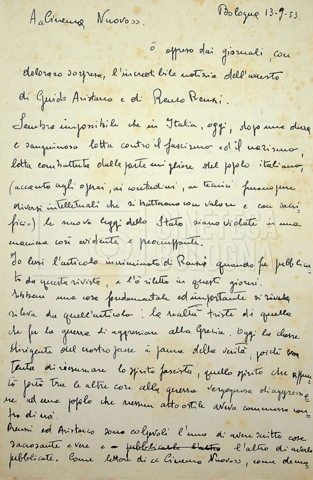 A "Cinema Nuovo".
Bologna 13-9-53.
ò appreso dai giornali, con
dolorosa sorpresa, l'incredibile notizia dell'arresto
di Guido Aristarco e di Renzo Renzi.
Sembra impossibile che in Italia, oggi, dopo una dura
e sanguinosa lotta contro il fascismo ed il nazismo,
lotta combattuta dalla parte migliore del popolo italiano,
(accanto agli operai, ai contadini, ai tecnici furono pure
diversi intellettuali che si batterono con valore e con sacri-
ficio) le nuove leggi dello Stato siano violate in una
maniera così evidente e preoccupante.
Io lessi l'articolo incriminato di Renzi quando fu pubblica-
to da questa rivista, e l'ò riletto in questi giorni.
Ebbene una cosa fondamentale ed importante si
rileva da quell'articolo: la realtà triste di quello
che fu la guerra di aggressione alla Grecia. Oggi la classe
dirigente del nostro paese à paura della verità, poichè
tenta di riesumare lo spirito fascista, quello spirito che
portò tra le altre cose alla guerra vergognosa di aggressio-
ne ad una popolo che nessun atto ostile aveva commesso con-
tro di noi.
Renzi ed Aristarco sono colpevoli l'uno di avere scritto cose
sacrosante e vere e pubblicarle l'altro l'altro di averle
pubblicate. Come lettore di "Cinema Nuovo", come